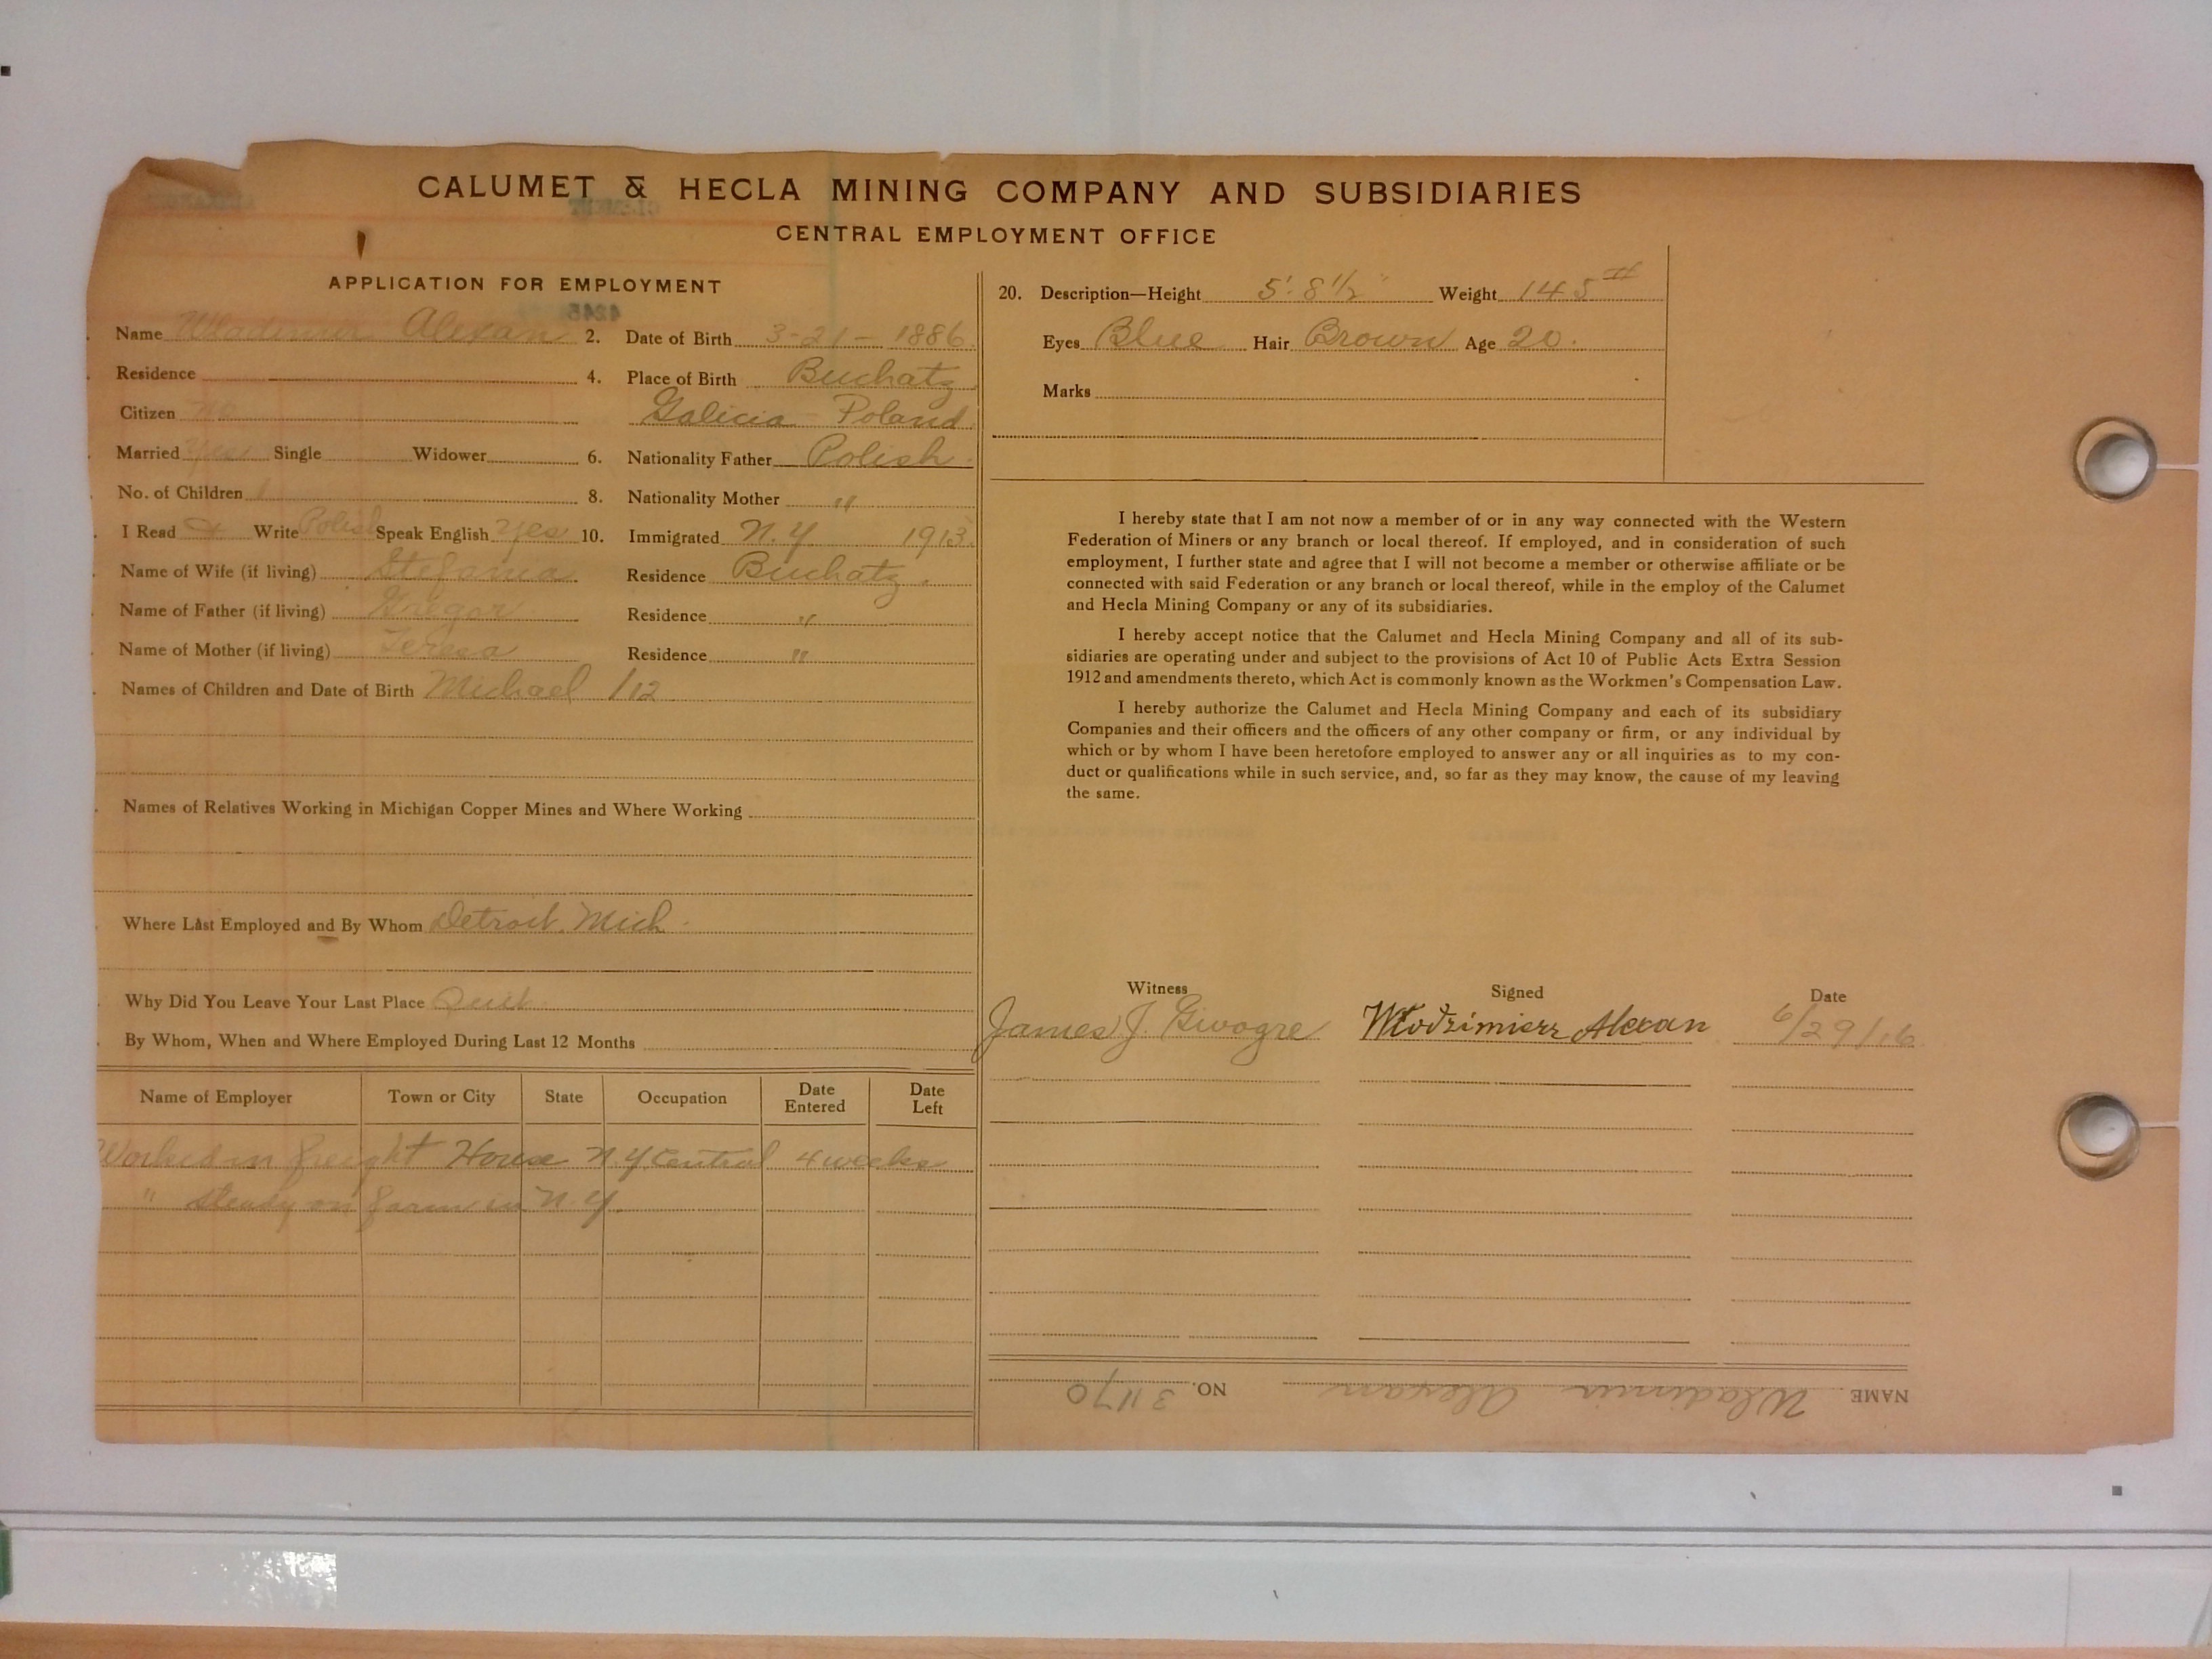 CALUMET & HECLA MINING COMPANY AND SUBSIDIARIES
CENTRAL EMPLOYMENT OFFICE
APPLICATION FOR EMPLOYMENT
Name Wladimir Alexan 2. Date of Birth 3-21-1886
Residence 4. Place of Birth Buchatz
Citizen no Galicia Poland
Married Yes Single Widower 6. Nationality Father Polish
No. of Children 1 8. Nationality Mother "
I Read & Write Polish Speak English Yes 10. Immigrated N.Y. 1913
Name of Wife (if living) Stefania Residence Buchatz.
Name of Father (if living) Gregor Residence "
Name of Mother (if living) Teresa Residence "
Names of Children and Date of Birth Michael 1/12
Names of Relatives Working in Michigan Copper Mines and Where Working
Where Last Employed and By Whom Detroit. Mich.
Why Did You Leave Your Last Place Quit
By Whom, When and Where Employed During Last 12 Months
Name of Employer Town or City State Occupation Date Entered Date Left
Worked in freight House N.Y Central 4 weeks
" steady on farm in N.Y.
20. Description—Height 5' 8 1/2" Weight 145#
Eyes Blue Hair Brown Age 20.
Marks
I hereby state that I am not now a member of or in any way connected with the Western
Federation of Miners or any branch or local thereof. If employed, and in consideration of such
employment, I further state and agree that I will not become a member or otherwise affiliate or be
connected with said Federation or any branch or local thereof, while in the employ of the Calumet
and Hecla Mining Company or any of its subsidiaries.
I hereby accept notice that the Calumet and Hecla Mining Company and all of its sub-
sidiaries are operating under and subject to the provisions of Act 10 of Public Acts Extra Session
1912 and amendments thereto, which Act is commonly known as the Workmen's Compensation Law.
I hereby authorize the Calumet and Hecla Mining Company and each of its subsidiary
Companies and their officers and the officers of any other company or firm, or any individual by
which or by whom I have been heretofore employed to answer any or all inquiries as to my con-
duct or qualifications while in such service, and, so far as they may know, the cause of my leaving
the same.
Witness Signed Date
James J. Givogre Włodzimierz Alexan 6/29/16
NAME Wladimir Alexan NO. 31170